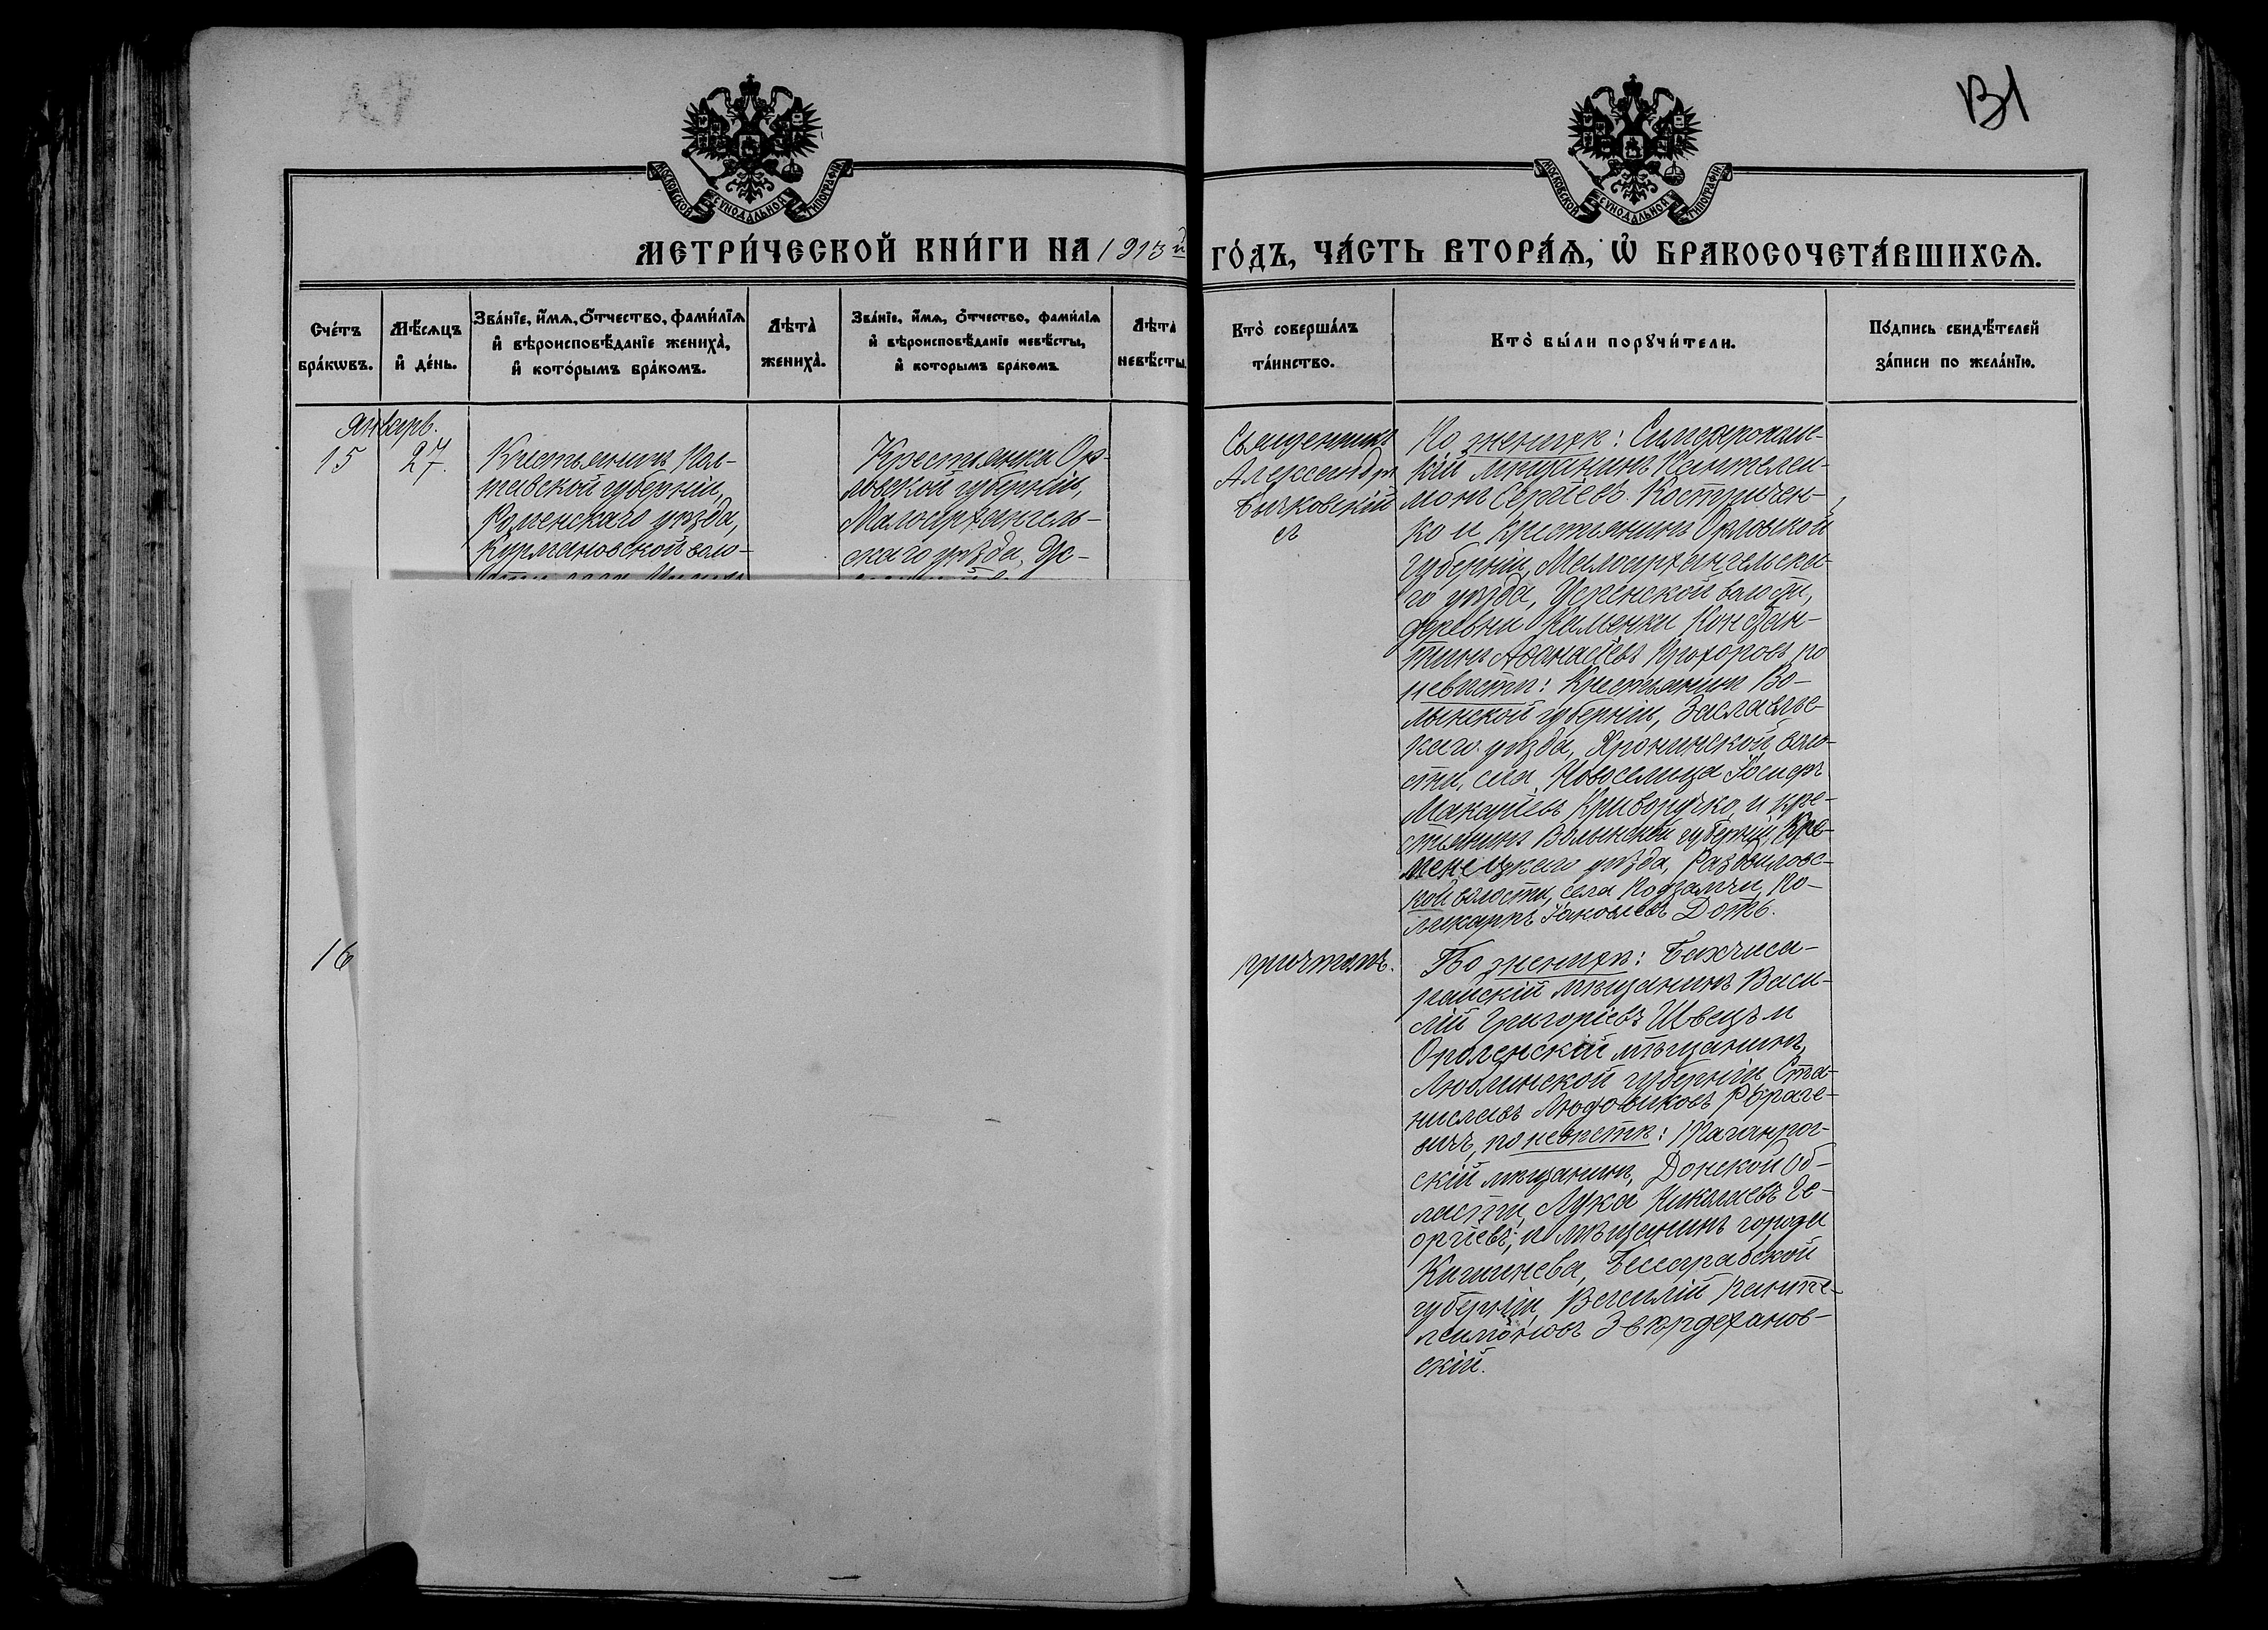 131
МОСКОВСКОЙ СУНОДАЛЬНОЙ ТИПОГРАФІИ
МОСКОВСКОЙ СУНОДАЛЬНОЙ ТИПОГРАФІИ
МЕТРИ́ЧЕСКОЙ КНИ́ГИ НА 1913й ГО́ДЪ, ЧА́СТЬ ВТОРА́Ѧ, Ѡ҆ БРАКОСОЧЕТА́ВШИХСѦ.
Сче́тъ
бра́кѡвъ.
Мѣ́сѧцъ
и҆ де́нь.
Зва́нїе, и҆́мѧ, ѻ҆́тчество, фами́лїѧ
и҆ вѣроисповѣ́данїе жениха̀,
и҆ кото́рымъ бра́комъ.
Лѣта̀
жениха̀.
Зва́нїе, и҆́мѧ, ѻ҆́тчество, фами́лїѧ
и҆ вѣроисповѣ́данїе невѣ́сты,
и҆ которымъ бра́комъ
Лѣта̀
невѣ́сты.
Кто̀ соверша́лъ
та́инство.
Кто̀ бы́ли порꙋчи́тели.
По́дпись свидѣ́телей
за́писи по жела́нїю.
Январь.
15
27.
Крестьянинъ Пол-
тавской губерніи,
Роменскаго уѣзда,
Курмановской воло-
Крестьянка Ор-
ловской губерніи,
Малоархангель-
скаго уѣзда, Ус-
Священникъ
Александръ
Бычковскій
съ
По женихѣ: Симферополь-
скій мѣщанинъ Пантелеи-
монъ Сергіевъ Костричен-
ко и крестьянинъ Орловской
губерніи, Малоархангельска-
го уѣзда, Успенской волости,
деревни Каменки Констан-
тинъ Аѳанасіевъ Прохоровъ, по
невѣстѣ: Крестьянинъ Во-
лынской губерніи, Заславль-
скаго уѣзда, воло-
сти, села Новоселица Іосифъ
Макаріевъ Криворучко и кре-
стьянинъ Волынской губерніи, Кре-
менецкаго уѣзда, Радзивиловс-
кой волости, села Подзамчи, По-
ликарпъ Іаковлевъ Дотъ.
16
причтомъ.
По женихѣ: Бахчиса-
райскій мѣщанинъ Васи-
лій Григоріевъ Швецъ и
Опольенскій мѣщанинъ,
Люблинской губерніи, Ста-
ниславъ Людовиковъ
вичъ, по невѣстѣ: Таганрог-
скій мѣщанинъ, Донской Об-
ласти, Лука Николаевъ Ге-
оргіевъ, и мѣщанинъ города
Кишинева, Бессарабской
губерніи, Василій Панте-
леимоновъ Звѣрдехановскій.